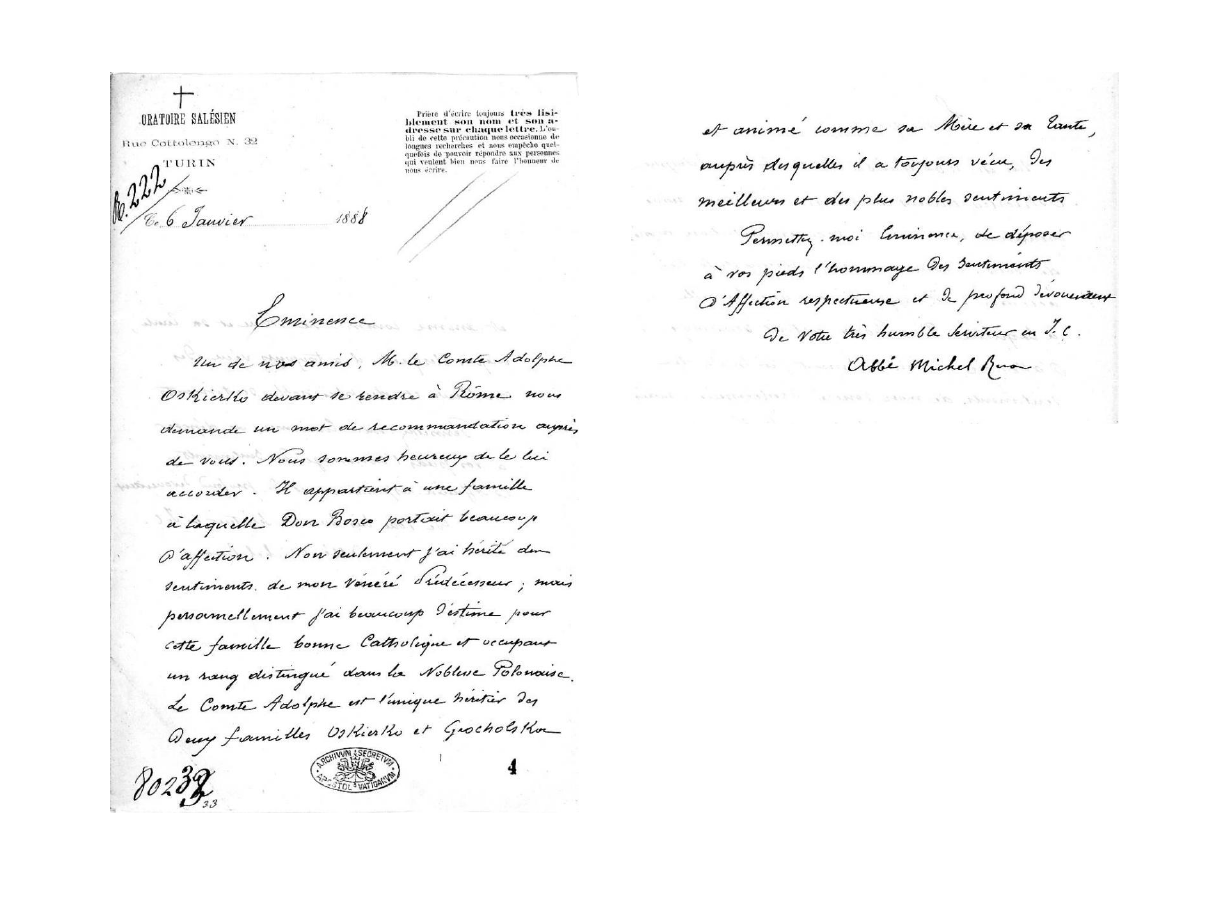 ORATOIRE SALÉSIEN
Rue Cottolengo N. 32
TURIN
222
Prière d'écrire toujours très lisi-
blement son nom et son a-
dresse sur chaque lettre. L'ou-
bli de cette précaution nous occasionne de
longues recherches et nous empêche quel-
quefois de pouvoir répondre aux personnes
qui veulent bien nous faire l'honneur de
nous écrire.
6 Janvier 1888
Eminence
Un de nos amis, M. le Comte Adolphe
Oskierko devant se rendre à Rôme nous
demande un mot de recommandation auprès
de vous. Nous sommes heureux de le lui
accorder. Il appartient à une famille
à laquelle Don Bosco portait beaucoup
d'affection. Non seulement j'ai hérité des
sentiments de mon vénéré Prédécesseur ; mais
personnellement j'ai beaucoup d'estime pour
cette famille bonne Catholique et occupant
un rang distingué dans la Noblesse Polonaise.
Le Comte Adolphe est l'unique héritier des
Deux familles Oskierko et Grocholska
ARCHIVVM SECRETVM
APOSTOL VATICANVM
4
802
33
et animé comme sa Mère et sa tante,
auprès desquelles il a toujours vécu, des
meilleurs et des plus nobles sentiments
Permettez-moi Eminence, de déposer
à vos pieds l'hommage des sentiments
d'Affection respectueuse et de profond dévouement
de votre très humble serviteur en J. C.
Abbé Michel Rua